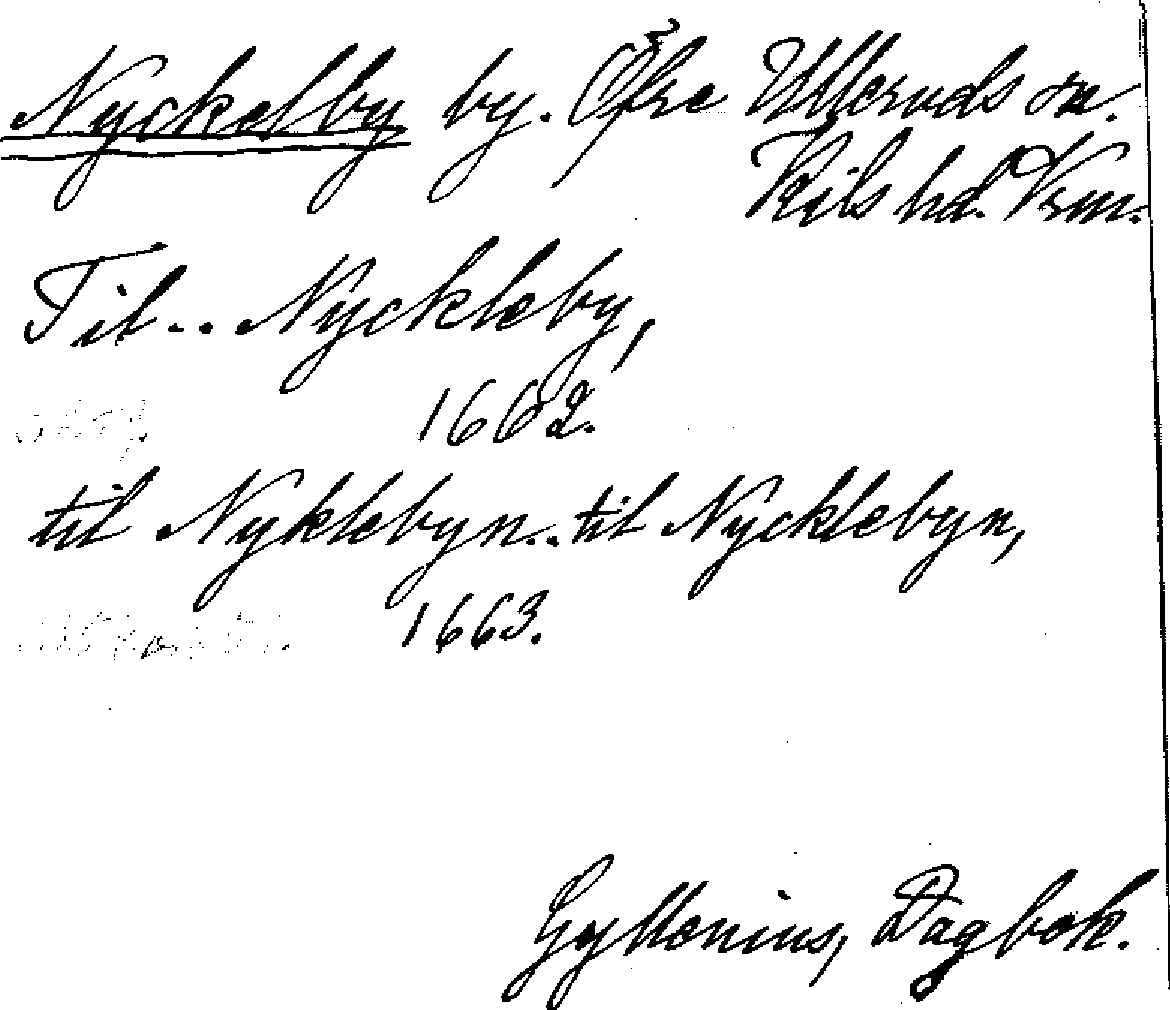 Nyckelby by. Öfre Ulleruds sn.
Kils hd. Vrm.
Til.. Nyckleby,
1662.
til Nyklebyn.. til Nycklebyn,
1663.
Gyllenius, Dagbok.